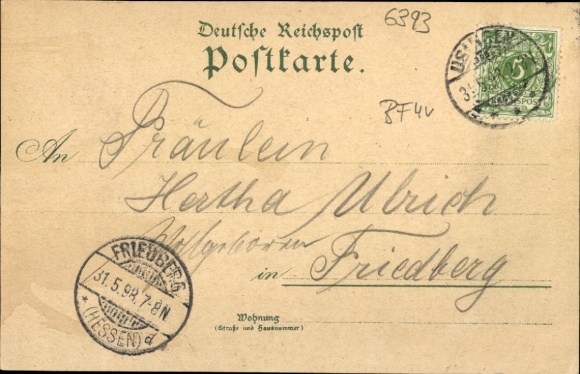 6393
Deutsche Reichspost
Postkarte.
USINGEN
31.5.98
5
BF4v
An Fräulein
Hertha Ulrich
Wohlgeboren
in Friedberg
FRIEDBERG
31.5.98.7-8N
* (HESSEN) d
Wohnung
(Straße und Hausnummer)